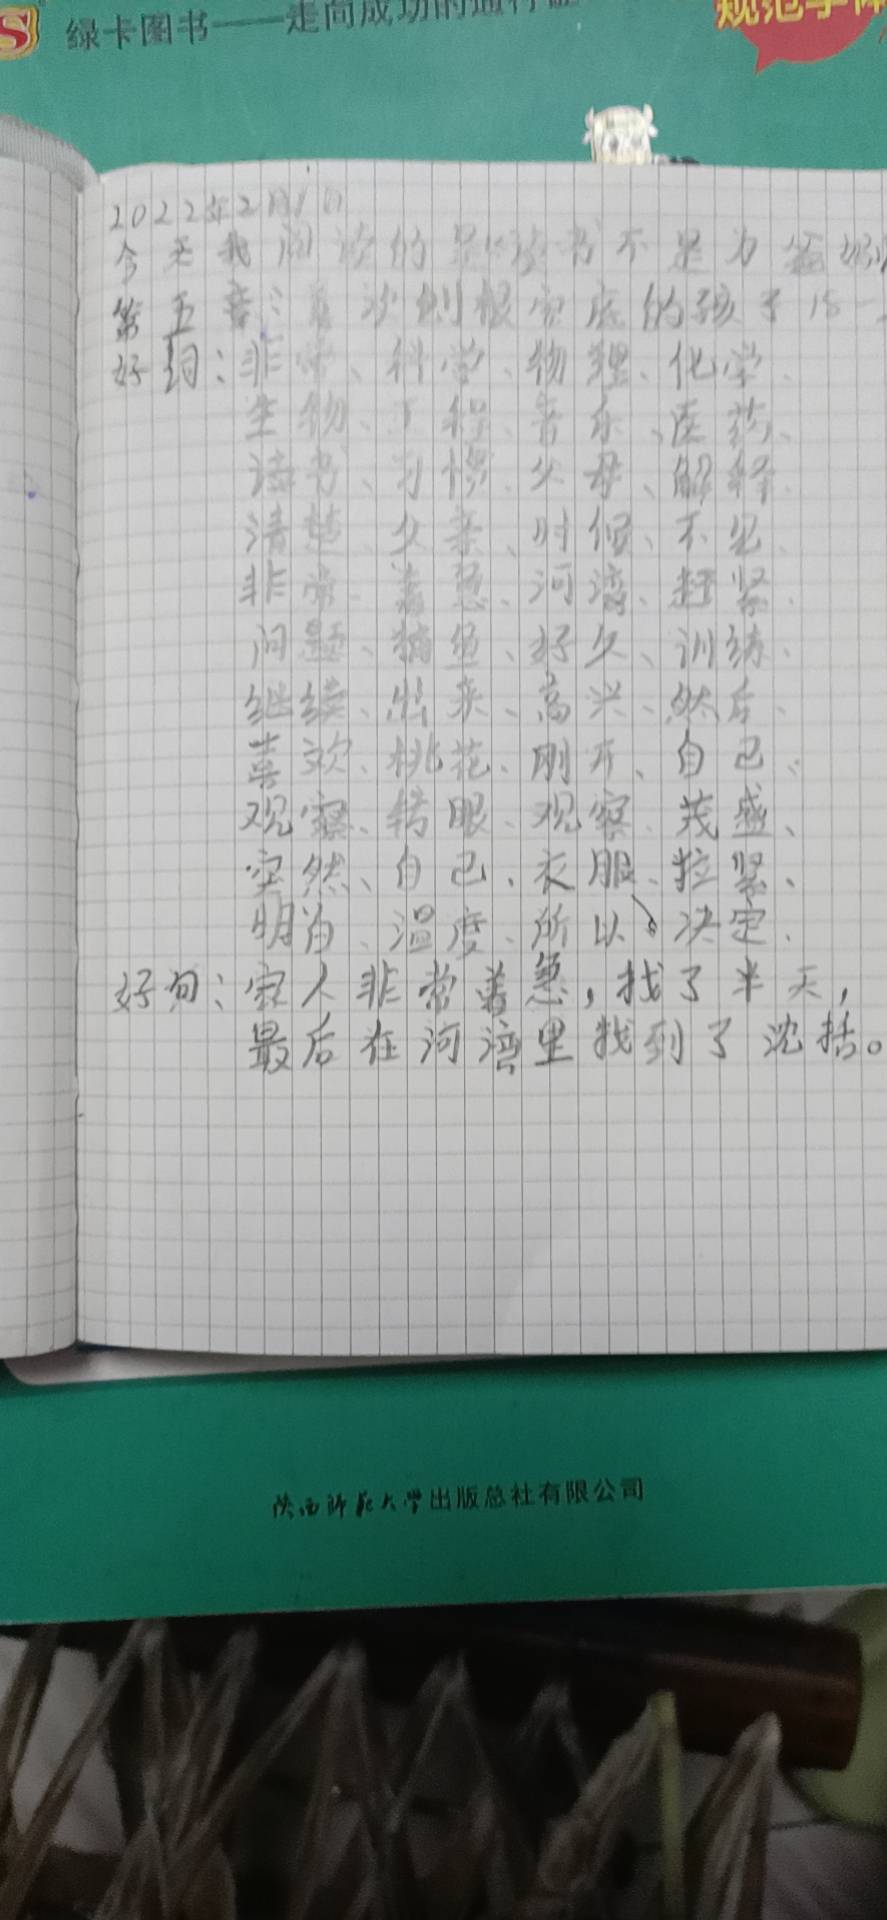 绿卡图书——走向成功的通行证
规范字体
2022年2月1日
今天我阅读的是《读书不是为爸妈
第五章:喜欢刨根究底的孩子 15-
好词:非常、科学、物理、化学、
生物、工程、音乐、医药、
读书、习惯、父母、解释、
清楚、父亲、时候、不见、
非常、着急、河湾、赶紧、
问题、捕鱼、好久、训练、
继续、出来、高兴、然后、
喜欢、桃花、刚开、自己、
观察、转眼、观察、茂盛、
突然、自己、衣服、拉紧、
明白、温度、所以、决定、
好句:家人非常着急,找了半天,
最后在河湾里找到了沈括。
陕西师范大学出版总社有限公司